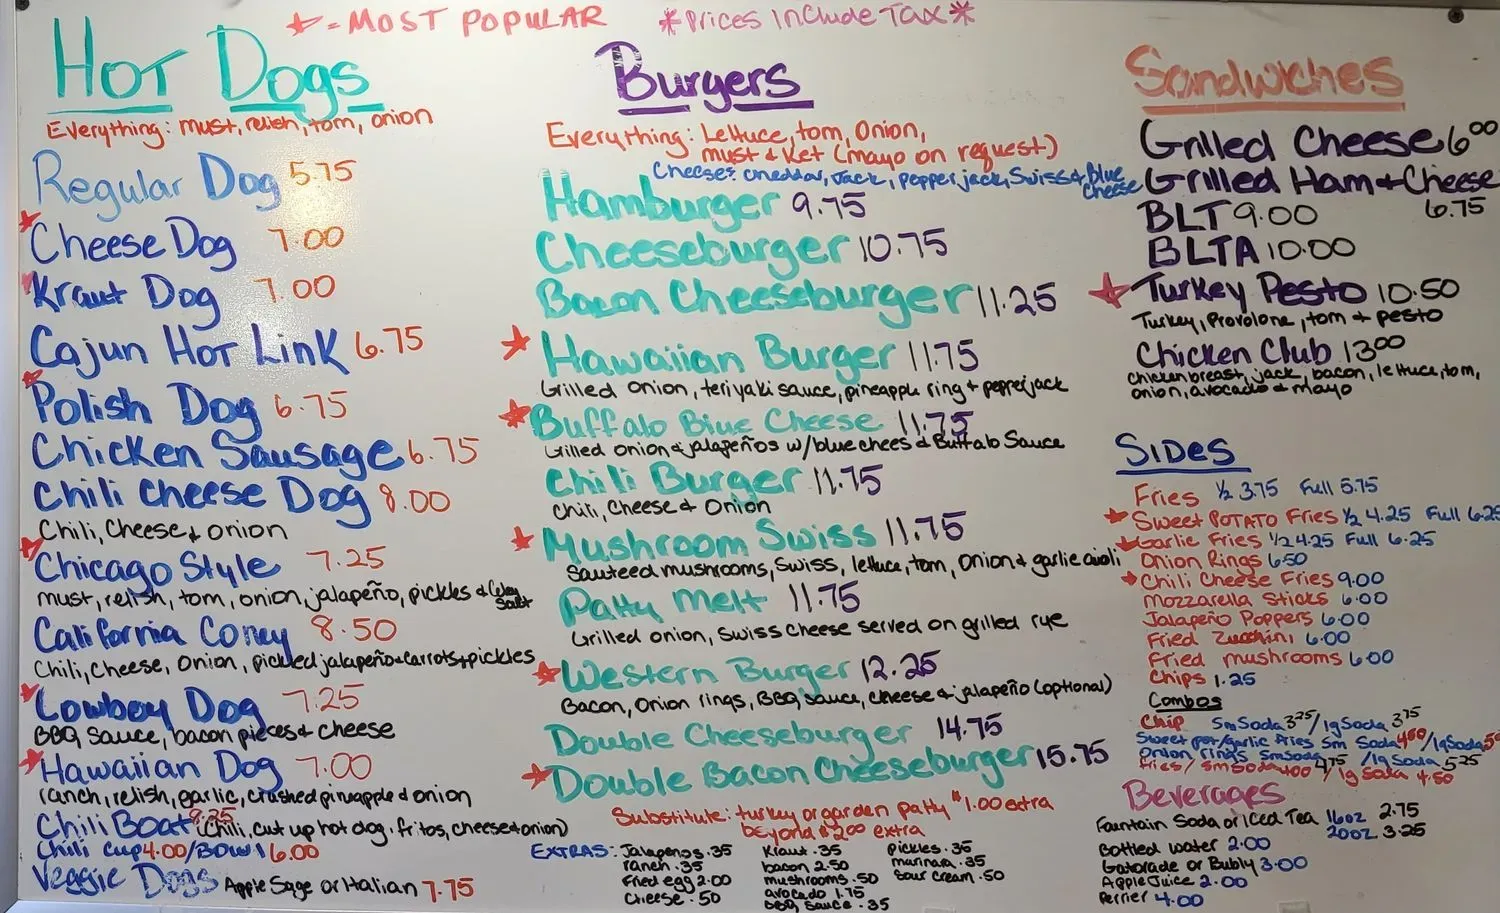 ★ = MOST POPULAR
*Prices Include Tax*
Hot Dogs
Everything: must, relish, tom, onion
Regular Dog 5.75
★ Cheese Dog 7.00
★ Kraut Dog 7.00
Cajun Hot Link 6.75
★ Polish Dog 6.75
Chicken Sausage 6.75
Chili Cheese Dog 8.00
Chili, Cheese & onion
★ Chicago Style 7.25
must, relish, tom, onion, jalapeño, pickles & Celery Salt
California Coney 8.50
Chili, Cheese, Onion, pickled jalapeño & carrots + pickles
★ Cowboy Dog 7.25
BBQ Sauce, bacon pieces & cheese
★ Hawaiian Dog 7.00
ranch, relish, garlic, crushed pineapple & onion
Chili Boat 8.25 (Chili, cut up hot dog, fritos, cheese & onion)
Chili Cup 4.00/Bowl 6.00
Veggie Dogs Apple Sage or Italian 7.75
Burgers
Everything: Lettuce, tom, Onion,
must & Ket (mayo on request)
Cheese: Cheddar, Jack, pepperjack, Swiss & Blue
Cheese
Hamburger 9.75
Cheeseburger 10.75
Bacon Cheeseburger 11.25
★ Hawaiian Burger 11.75
Grilled Onion, teriyaki sauce, pineapple ring + pepperjack
★ Buffalo Blue Cheese 11.75
Grilled Onion & jalapeños w/blue chees & Buffalo Sauce
Chili Burger 11.75
Chili, Cheese & Onion
★ Mushroom Swiss 11.75
Sauteed mushrooms, Swiss, lettuce, tom, Onion & garlic aioli
Patty Melt 11.75
Grilled onion, Swiss cheese served on grilled rye
★ Western Burger 12.25
Bacon, Onion rings, BBQ Sauce, cheese & jalapeño (optional)
Double Cheeseburger 14.75
★ Double Bacon Cheeseburger 15.75
Substitute: turkey or garden patty $1.00 extra
beyond $2.00 extra
EXTRAS: Jalapenos .35
ranch .35
Fried egg 2.00
Cheese .50
Kraut .35
bacon 2.50
mushrooms .50
avocado 1.75
BBQ Sauce .35
pickles .35
marinara .35
Sour cream .50
Sandwiches
Grilled Cheese 6.00
Grilled Ham & Cheese
6.75
BLT 9.00
BLTA 10.00
★ Turkey Pesto 10.50
Turkey, Provolone, tom & pesto
Chicken Club 13.00
chicken breast, jack, bacon, lettuce, tom,
onion, avocado & mayo
Sides
Fries 1/2 3.75 Full 5.75
★ Sweet Potato Fries 1/2 4.25 Full 6.25
★ Garlic Fries 1/2 4.25 Full 6.25
Onion Rings 6.50
★ Chili Cheese Fries 9.00
Mozzarella Sticks 6.00
Jalapeño Poppers 6.00
Fried Zucchini 6.00
Fried mushrooms 6.00
Chips 1.25
Combos
Chip Sm Soda 3.25/lg Soda 3.75
Sweet pot/garlic fries Sm Soda /lg Soda
Onion rings Sm Soda 4.75 /lg Soda 5.25
fries/ Sm Soda 4.00 /lg Soda 4.50
Beverages
Fountain Soda or Iced Tea 16oz 2.75
20oz 3.25
Bottled water 2.00
Gatorade or Bubly 3.00
Apple Juice 2.00
Perrier 4.00